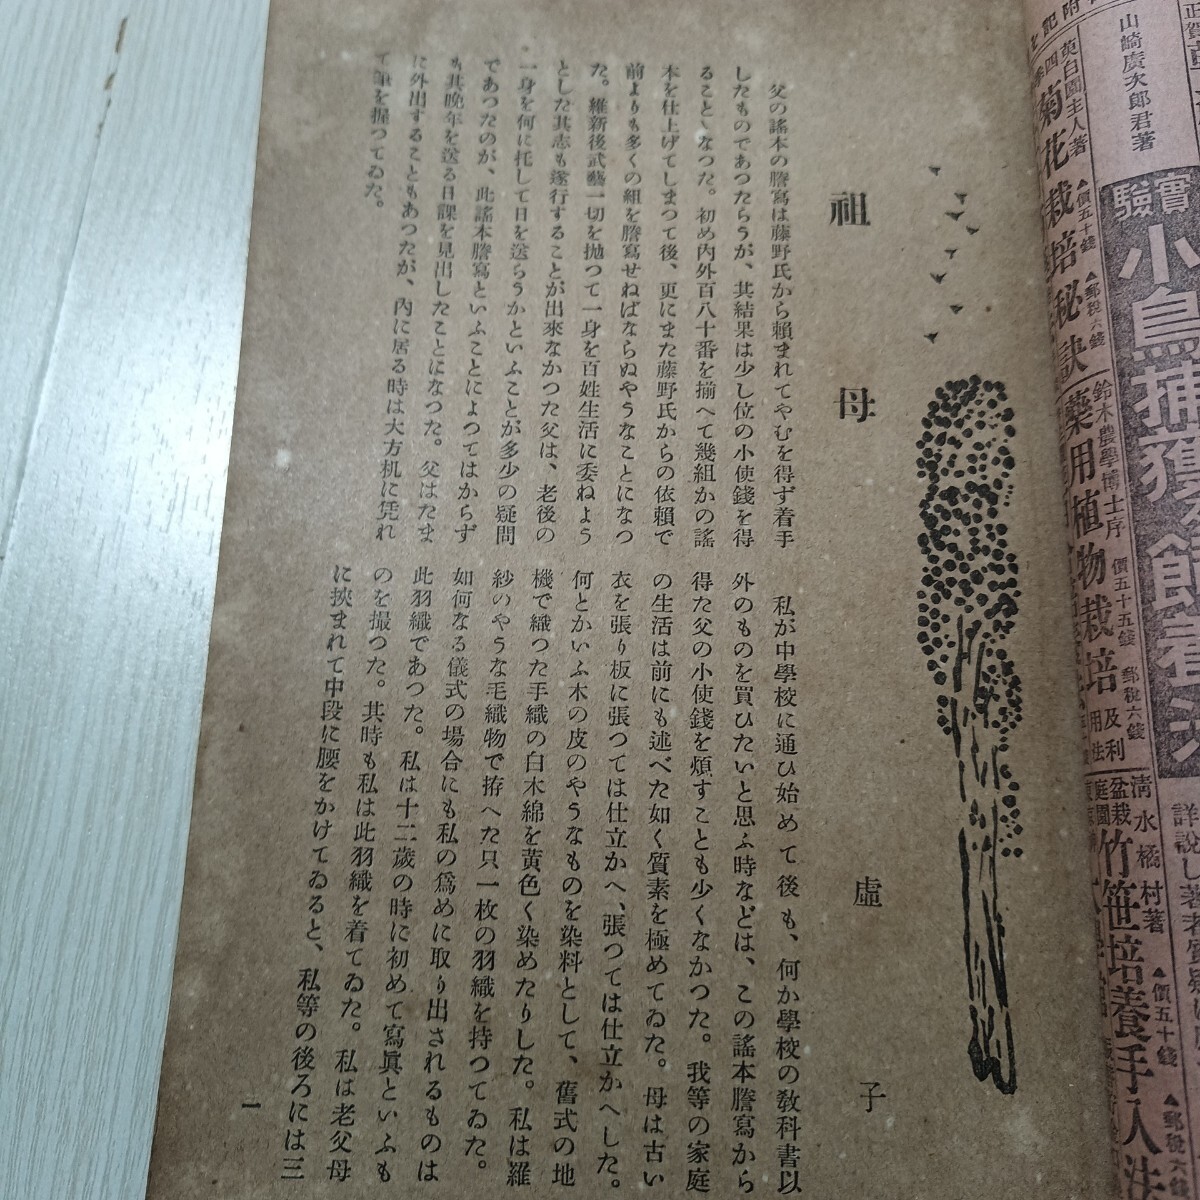 山崎廣次郎君著
實驗
小鳥捕獲
莢白園主人著
四季
菊花栽培秘訣
▲價五十錢 ▲郵税六錢
鈴木農學博士序
藥用植物栽培
及利用法
價五十五錢 郵税六錢
清水橘村著
盆栽
庭園
竹笹培養手入法
▲價五十錢 ▲郵税六錢
祖母
虚子
父の謠本の謄寫は藤野氏から賴まれてやむを得ず着手
したものであつたらうが、其結果は少し位の小使錢を得
ることゝなつた。初め內外百八十番を揃へて幾組かの謠
本を仕上げてしまつて後、更にまた藤野氏からの依賴で
前よりも多くの組を謄寫せねばならぬやうなことになつ
た。維新後武藝一切を抛つて一身を百姓生活に委ねよう
とした其志も遂行することが出來なかつた父は、老後の
一身を何に托して日を送らうかといふことが多少の疑問
であつたのが、此謠本謄寫といふことによつてはからず
も其晩年を送る日課を見出したことになつた。父はたま
に外出することもあつたが、內に居る時は大方机に凭れ
て筆を握つてゐた。
私が中學校に通ひ始めて後も、何か學校の敎科書以
外のものを買ひたいと思ふ時などは、この謠本謄寫から
得た父の小使錢を煩すことも少くなかつた。我等の家庭
の生活は前にも述べた如く質素を極めてゐた。母は古い
衣を張り板に張つては仕立かへ、張つては仕立かへした。
何とかいふ木の皮のやうなものを染料として、舊式の地
機で織つた手織の白木綿を黃色く染めたりした。私は羅
紗のやうな毛織物で拵へた只一枚の羽織を持つてゐた。
如何なる儀式の場合にも私の爲めに取り出されるものは
此羽織であつた。私は十二歲の時に初めて寫眞といふも
のを撮つた。其時も私は此羽織を着てゐた。私は老父母
に挾まれて中段に腰をかけてゐると、私等の後ろには三
一